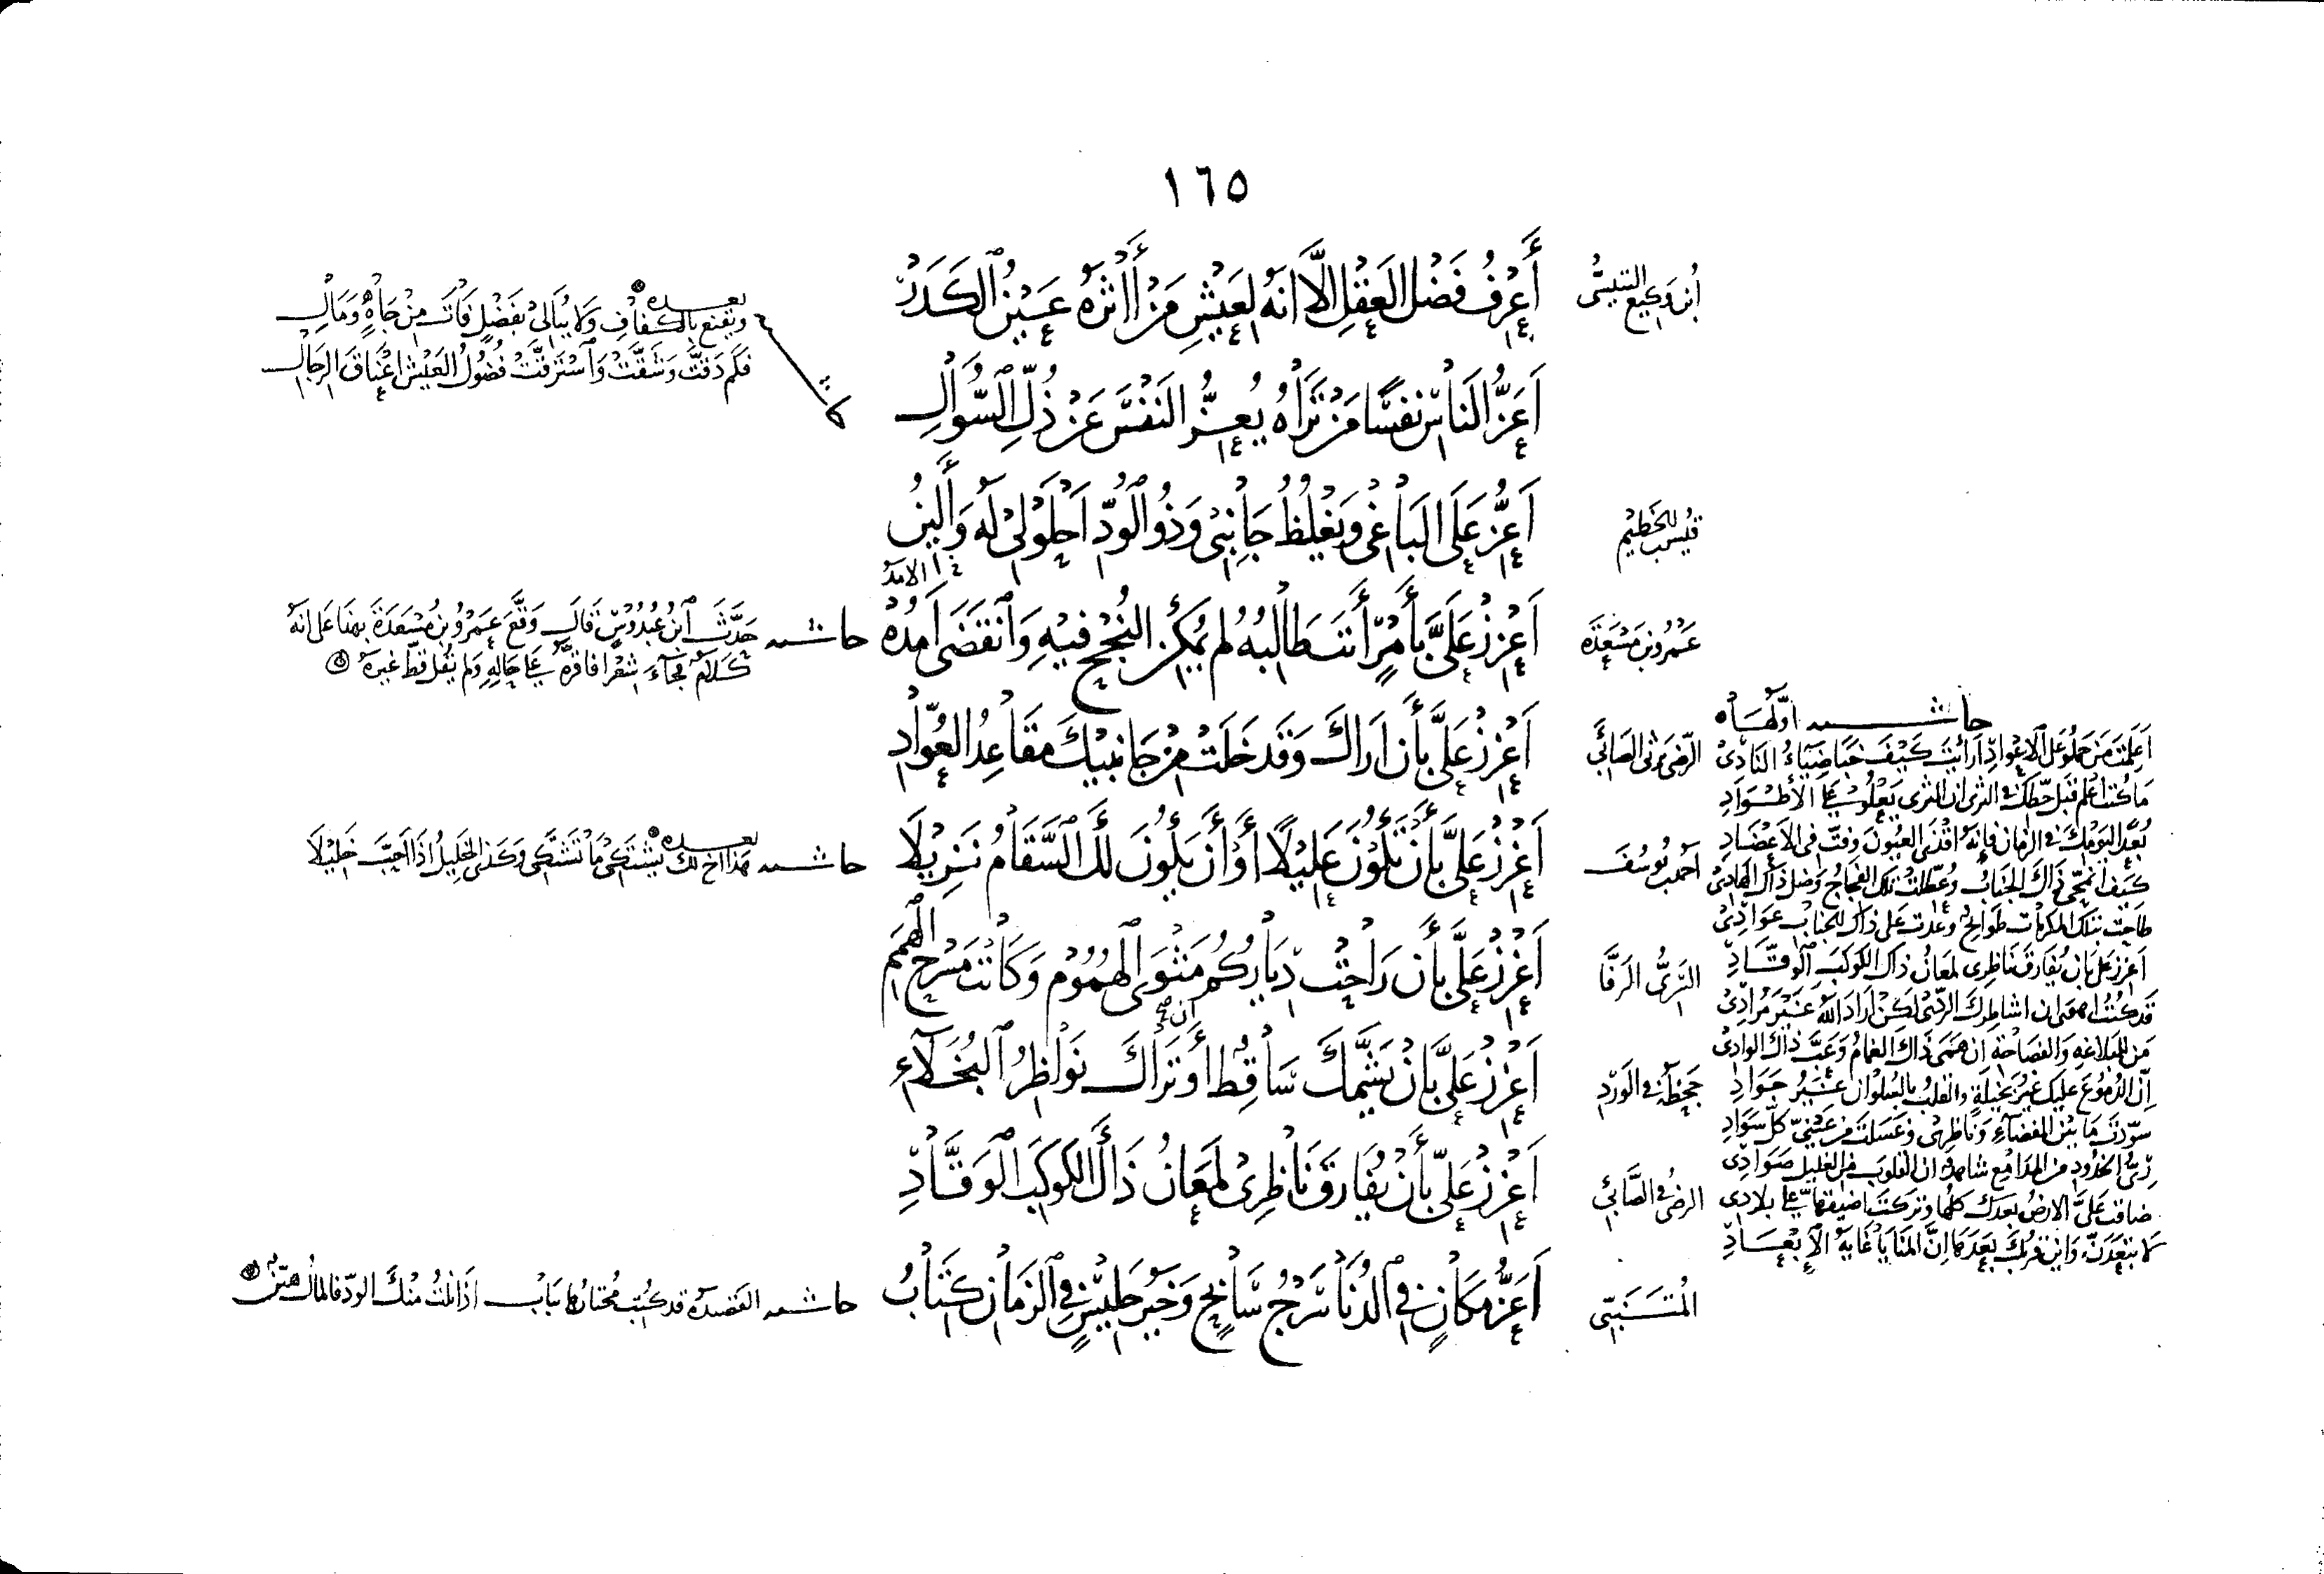 ١٦٥
ابن وكيع التنيسي
أَعْرِفُ فَضْلَ العَقْلِ إِلَّا أَنَّهُ لِعَيْشِ مَنْ آثَرَهُ عَيْنُ الكَدَرْ
أَعَزُّ النَّاسِ نَفْسًا مَنْ تَرَاهُ يُعِزُّ النَّفْسَ عَنْ ذُلِّ السُّوَالِ
بعده
وَيَقْنَعُ بِالكَفَافِ وَلَا يُبَالِي بِفَضْلٍ فَاتَ مِنْ جَاهٍ وَمَالِ
فَكَمْ دَقَّتْ وَشَقَّتْ وَاسْتَرَقَّتْ فُضُولُ العَيْشِ أَعْنَاقَ الرِّجَالِ
قيس بن الخطيم
أَعِزُّ عَلَى البَاغِي وَيَغْلِظُ جَانِبِي وَذُو الوُدِّ أَحْلَوْلِي لَهُ وَأَلِينُ
عمرو بن مسعدة
أَعْزِزْ عَلَيَّ بِأَمْرٍ أَنْتَ طَالِبُهُ لَمْ يُمْكِنِ النُّجْحُ فِيهِ وَانْقَضَى أَمَدُهْ
حاشية حَدَّثَ ابنُ عُبْدُوسٍ قَالَ وَقَّعَ عَمْرُو بنُ مَسْعَدَةَ بهذا على أنه
كلام فجاء شعرا فاقره على حاله ولم يقل قط غيره
الرضي يرثي الصابي
أَعْزِزْ عَلَيَّ بِأَنْ أَرَاكَ وَقَدْ خَلَتْ مِنْ جَانِبَيْكَ مَقَاعِدُ العُوَّادِ
أحمد بن يوسف
أَعْزِزْ عَلَيَّ بِأَنْ تَكُونَ عَلِيلًا أَوْ أَنْ يَكُونَ لَكَ السَّقَامُ نَزِيلَا
حاشية بعده هَذَا أخ لك يَشْتَكِي مَا تَشْتَكِي وَكَذَى الخَلِيلُ إِذَا أَحَبَّ خَلِيلَا
السري الرفا
أَعْزِزْ عَلَيَّ بِأَنْ رَاحَتْ دِيَارُكُمْ مَثْوَى الهُمُومِ وَكَانَتْ مَسْرَحَ الهِمَمِ
جحظة في الورد
أَعْزِزْ عَلَيَّ بِأَنْ يَشَمَّكَ سَاقِطٌ أَوْ أَنْ تَرَاكَ نَوَاظِرُ البُخَلَاءِ
الرضي في الصابي
أَعْزِزْ عَلَيَّ بِأَنْ يُفَارِقَ نَاظِرِي لَمَعَانُ ذَاكَ الكَوْكَبِ الوَقَّادِ
المتنبي
أَعَزُّ مَكَانٍ فِي الدُّنَا سَرْجُ سَابِحٍ وَخَيْرُ جَلِيسٍ فِي الزَّمَانِ كِتَابُ
حاشية القصيدة قد كتبت مختارها بباب إذا نلت منك الود فالمال هين
حاشية أولها
أَعَلِمْتَ مَنْ حَمَلُوا عَلَى الأَعْوَادِ أَرَأَيْتَ كَيْفَ خَبَا ضِيَاءُ النَّادِي
مَا كُنْتُ أَعْلَمُ قَبْلَ حَطِّكَ فِي الثَّرَى أن الثرى يَعْلُو عَلَى الأَطْوَادِ
بُعْدًا لِيَوْمِكَ فِي الزمان فإنه أقذى العيون وفت في الأعضاد
كيف انمحى ذاك الجناب وعطلت تلك الفجاج وضل ذاك الهادي
طاحت بتلك المكرمات طوائح وعدت على ذاك الجناب عوادي
أعزز علي بأن يفارق ناظري لمعان ذاك الكوكب الوقاد
قد كنت أهوى أن أشاطرك الردى لكن أراد الله غير مرادي
من للبلاغة والفصاحة إن همى ذاك الغمام وعب ذاك الوادي
إن الدموع عليك غير بخيلة والقلب بالسلوان غير جواد
سودت ما بين الفضاء وناظري وغسلت من عيني كل سواد
ري الخدود من المدامع شاهد أن القلوب من الغليل صوادي
ضاقت علي الأرض بعدك كلها وتركت أضيقها علي بلادي
لا تبعدن وأين قربك بعدها إن المنايا غاية الإبعاد